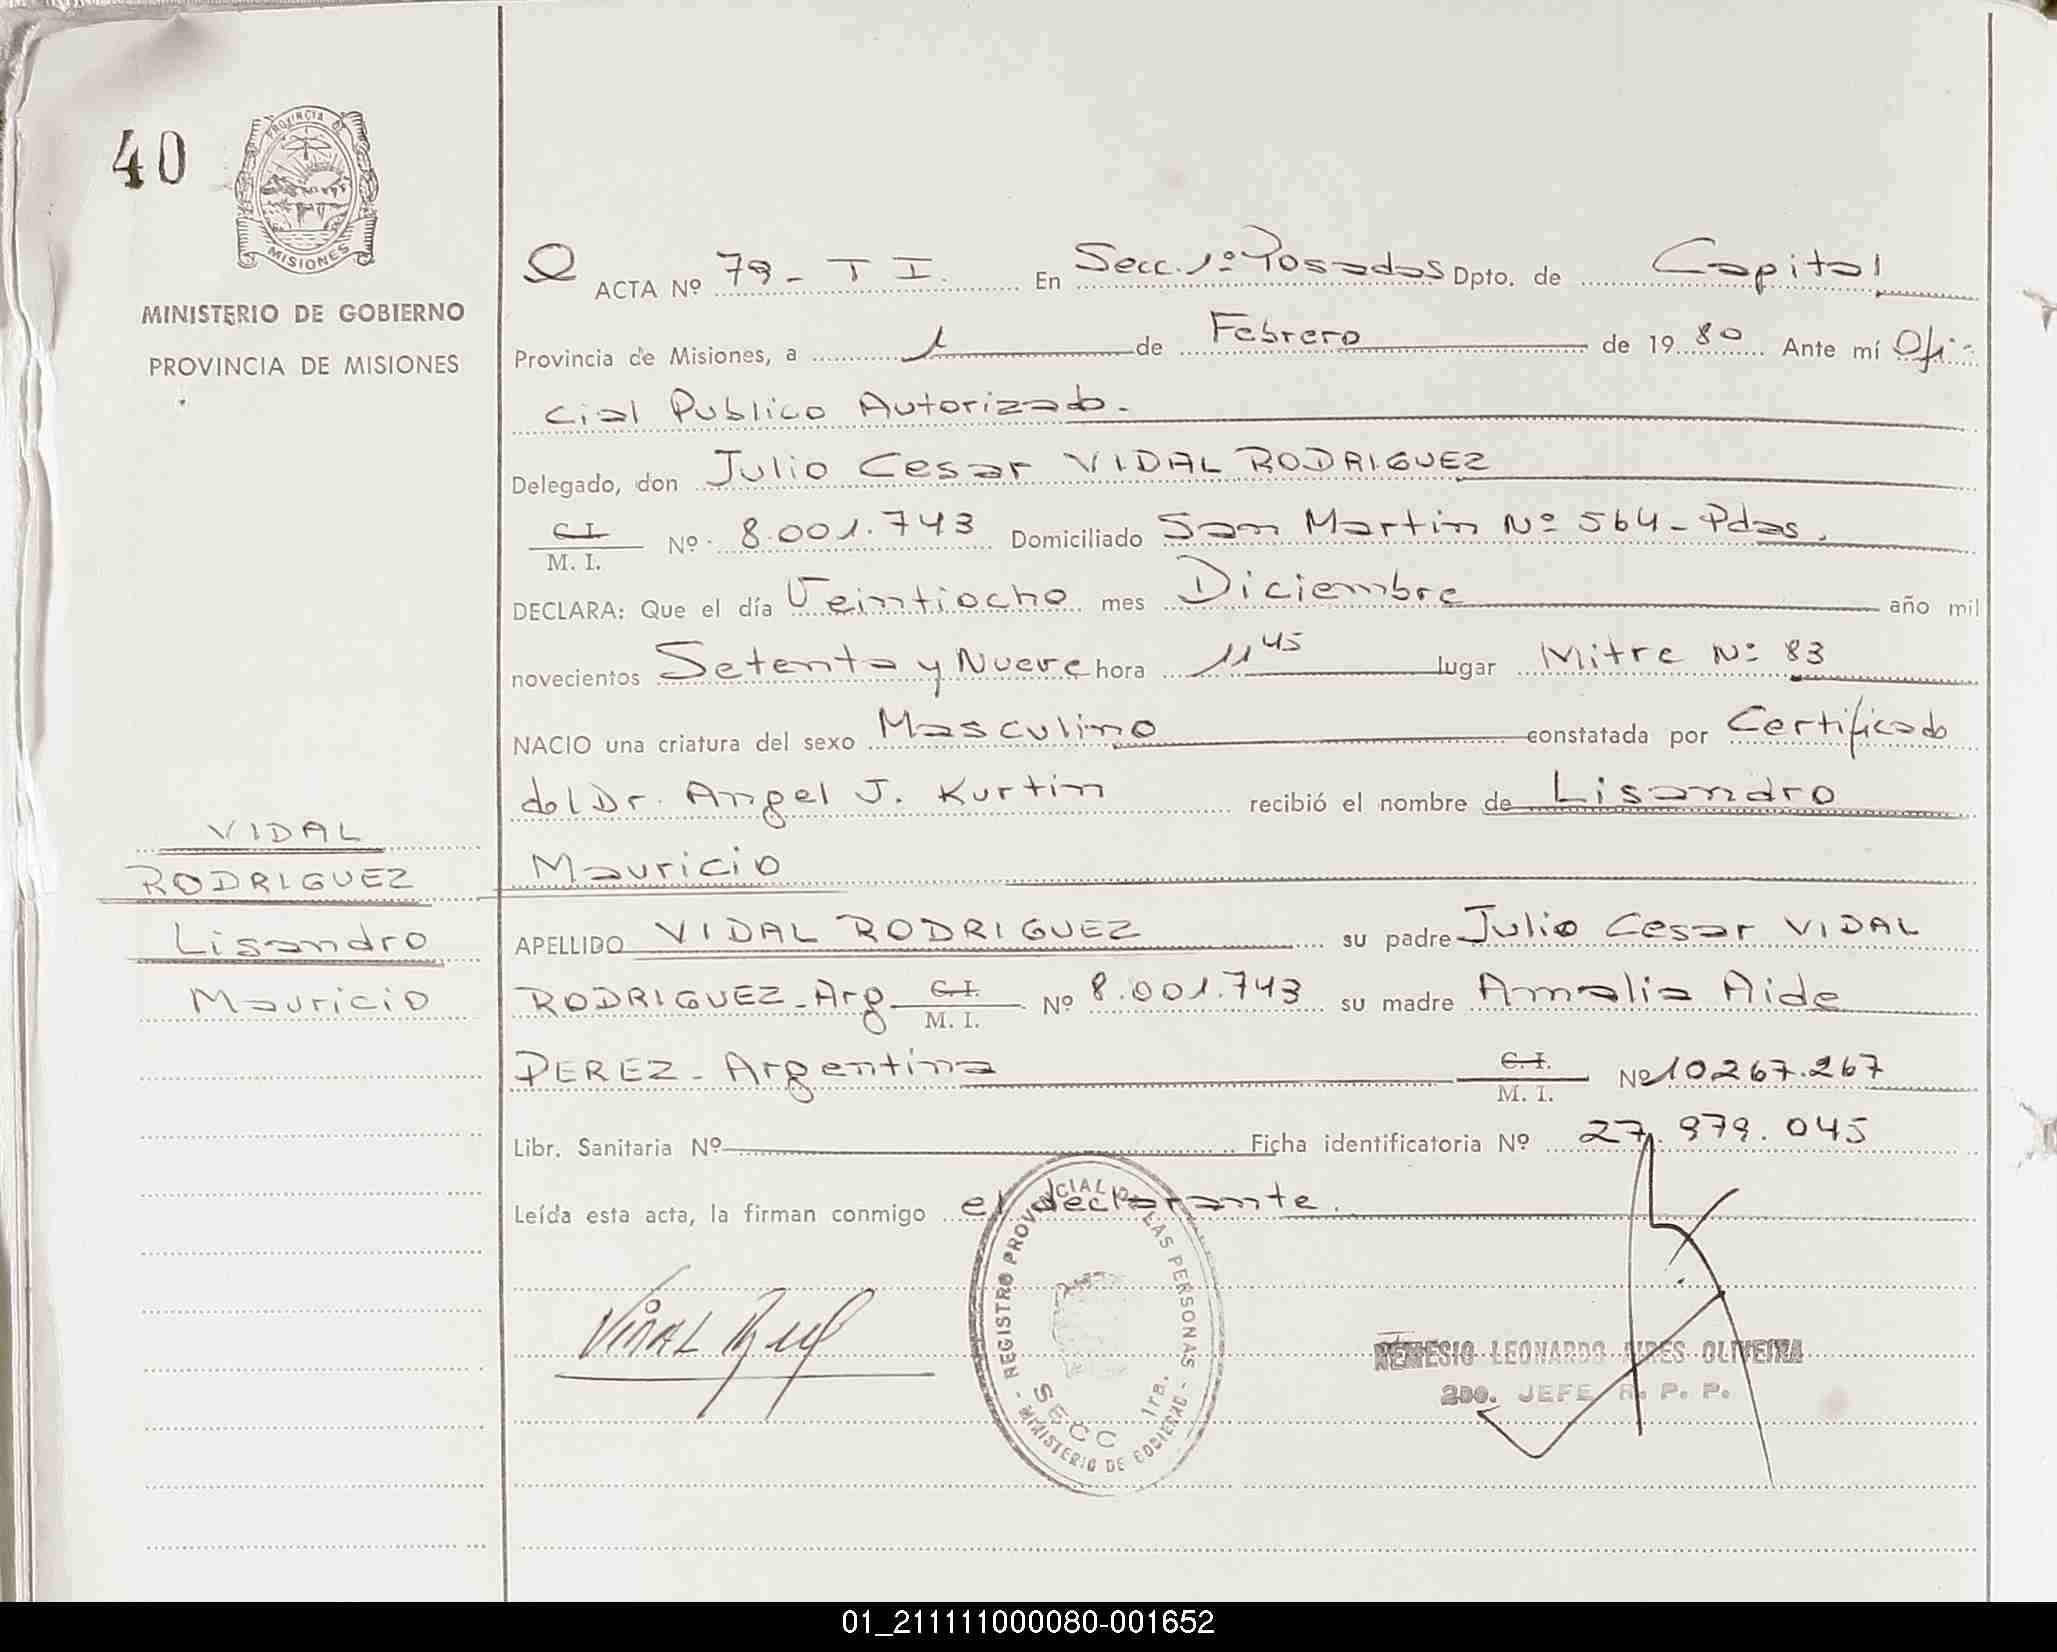 40
PROVINCIA DE
MISIONES
MINISTERIO DE GOBIERNO
PROVINCIA DE MISIONES
ACTA Nº 79 - T I. En Secc. 1º Posadas Dpto. de Capital
Provincia de Misiones, a 1 de Febrero de 1980 Ante mí Ofi-
cial Publico Autorizado.-
Delegado, don Julio Cesar VIDAL RODRIGUEZ
C.I. M. I. Nº 8.001.743 Domiciliado San Martin Nº 564 - Pdas.
DECLARA: Que el día Veintiocho mes Diciembre año mil
novecientos Setenta y Nueve hora 11 45 lugar Mitre Nº 83
NACIO una criatura del sexo Masculino constatada por Certificado
del Dr. Angel J. Kurtin recibió el nombre de Lisandro
Mauricio
APELLIDO VIDAL RODRIGUEZ su padre Julio Cesar VIDAL
RODRIGUEZ - Arg C.I. M. I. Nº 8.001.743 su madre Amalia Aide
PEREZ - Argentina C.I. M. I. Nº 10267.267
Libr. Sanitaria Nº Ficha identificatoria Nº 27.979.045
Leída esta acta, la firman conmigo el declarante.
VIDAL
RODRIGUEZ
Lisandro
Mauricio
VIDAL
- REGISTRO PROVINCIAL DE LAS PERSONAS -
MINISTERIO DE GOBIERNO
SECC 1ra.
NEMESIO LEONARDO AIRES OLIVEIRA
2do. JEFE R. P. P.
01_211111000080-001652